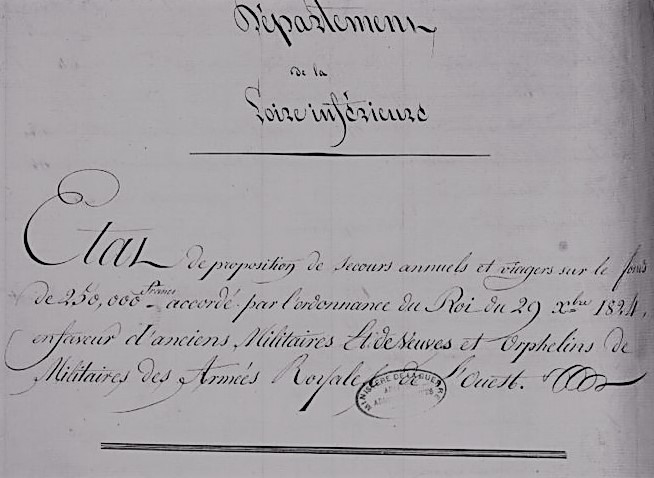 Département
de la
Loire inférieure
Etat de proposition de secours annuels et viagers sur le fonds
de 250,000 francs accordé par l'ordonnance du Roi du 29 Xbre 1824,
en faveur d'anciens Militaires Et de Veuves et Orphelins de
Militaires des Armées Royales de l'Ouest.
MINISTERE DE LA GUERRE